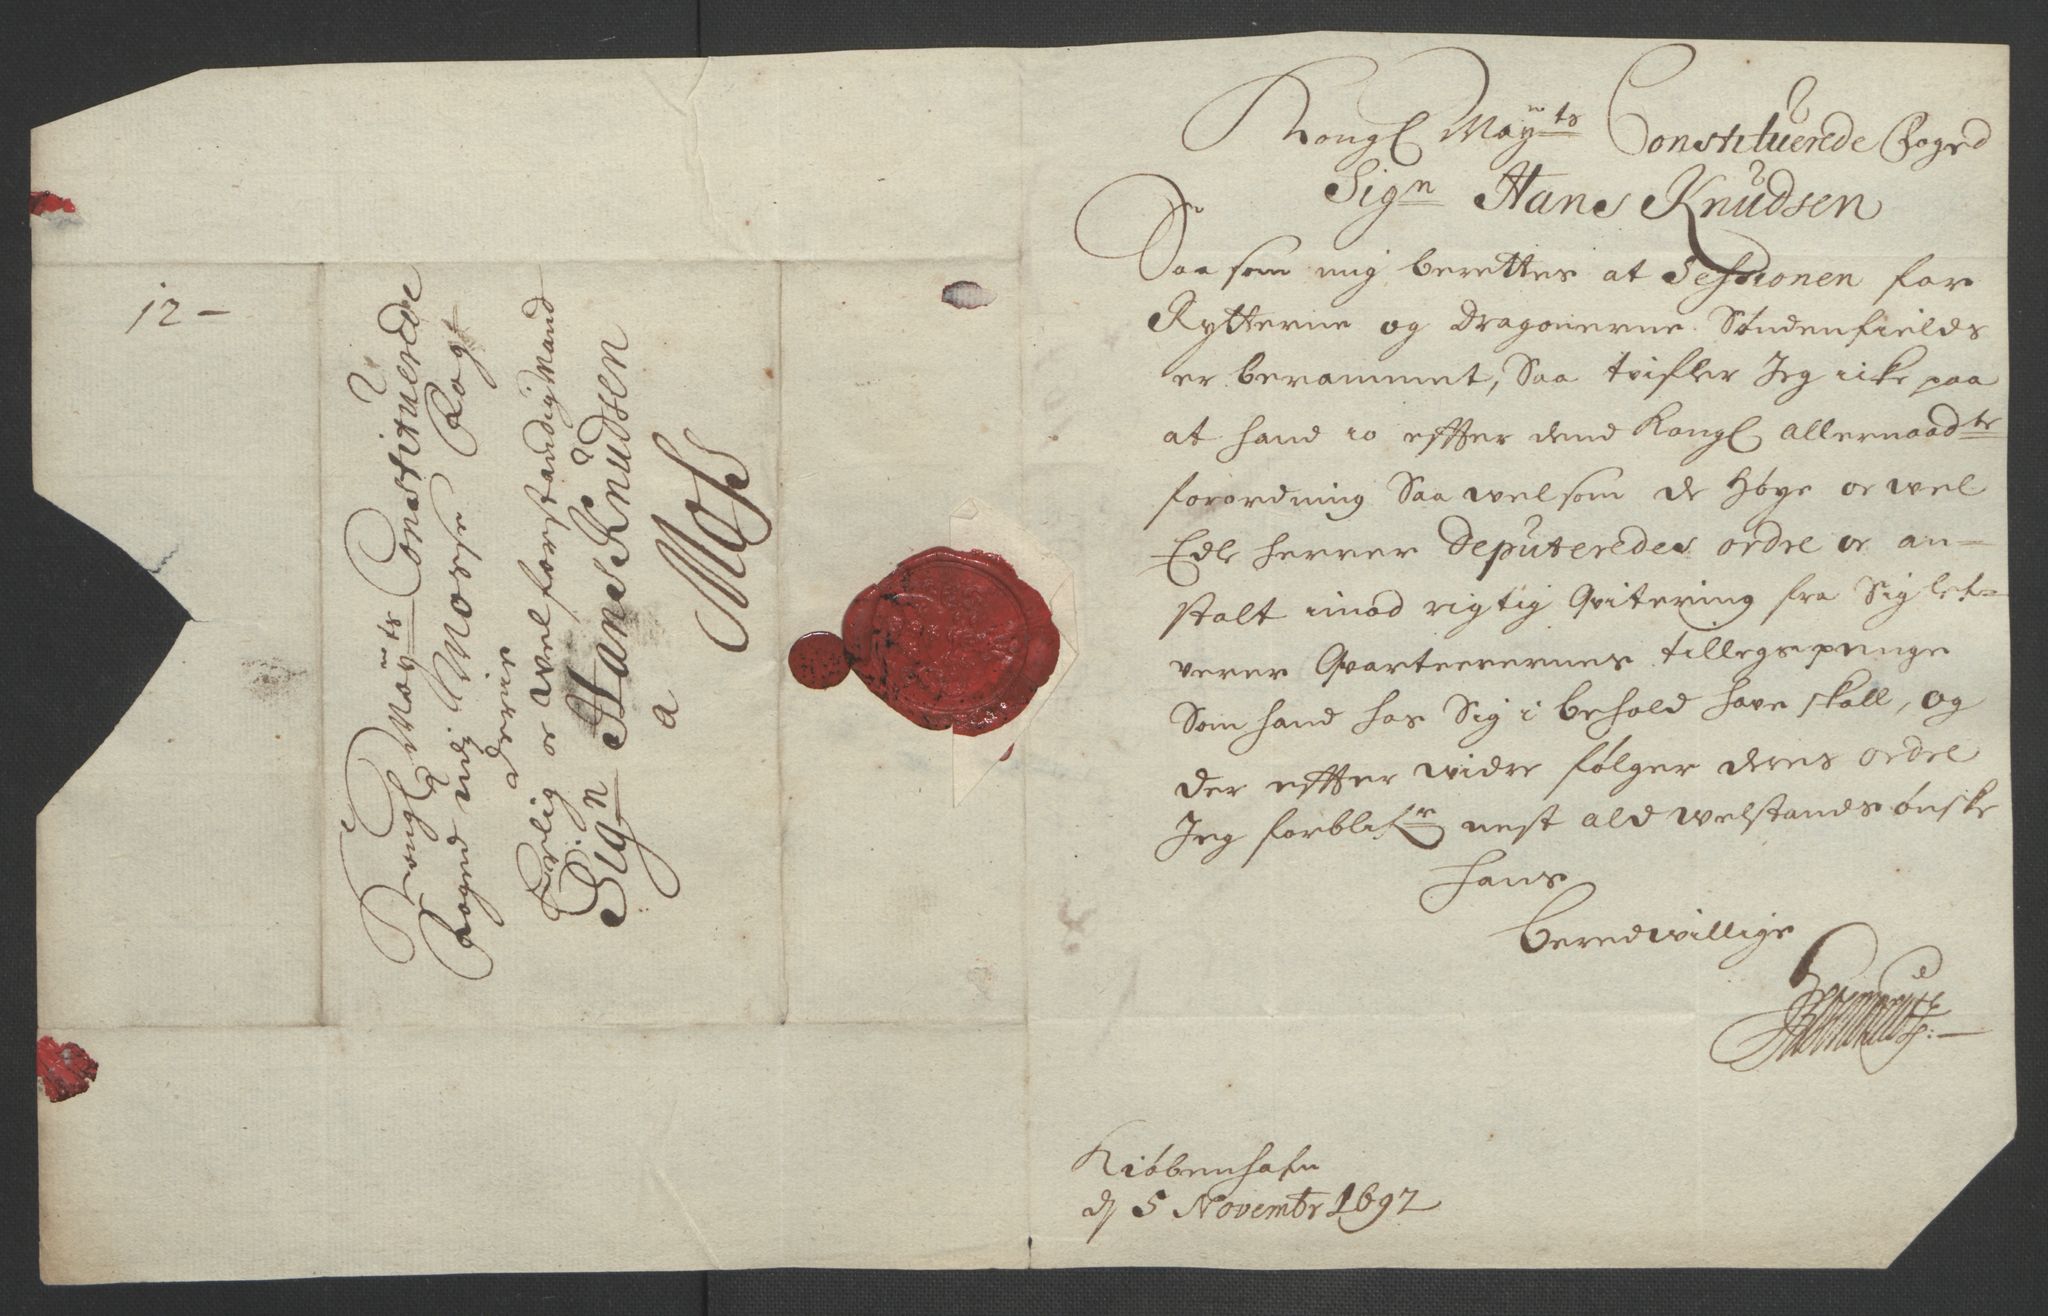 12 –
Kongl Mayts Constituerede
Foged udj Mosse Fogt
derie
Ærlig oc welforstandig Mand
Sign Hans Knudsen
a
Moss
Kongl Mayts Constituerede Foged
Sign Hans Knudsen
Saa som mig berettes at Sessionen for
Rytterne og Dragonerne Søndenfields
er berammet, Saa tvifler Jeg icke paa
at hand io effter dend Kongl allernaadte
forordning Saa velsom de Høye oc wel
Edle Herrer Deputeredes ordre oc an-
stalt imod rigtig Qvitering fra Sig let-
verer Qvarteerernes tillegspenge
Som hand hos Sig i behold have skall, og
der effter widre følger deres ordre
Jeg forblifr nest ald welstands ønske
Hans
beredwillige
Kiöbenhafn
dj 5 Novembr 1692